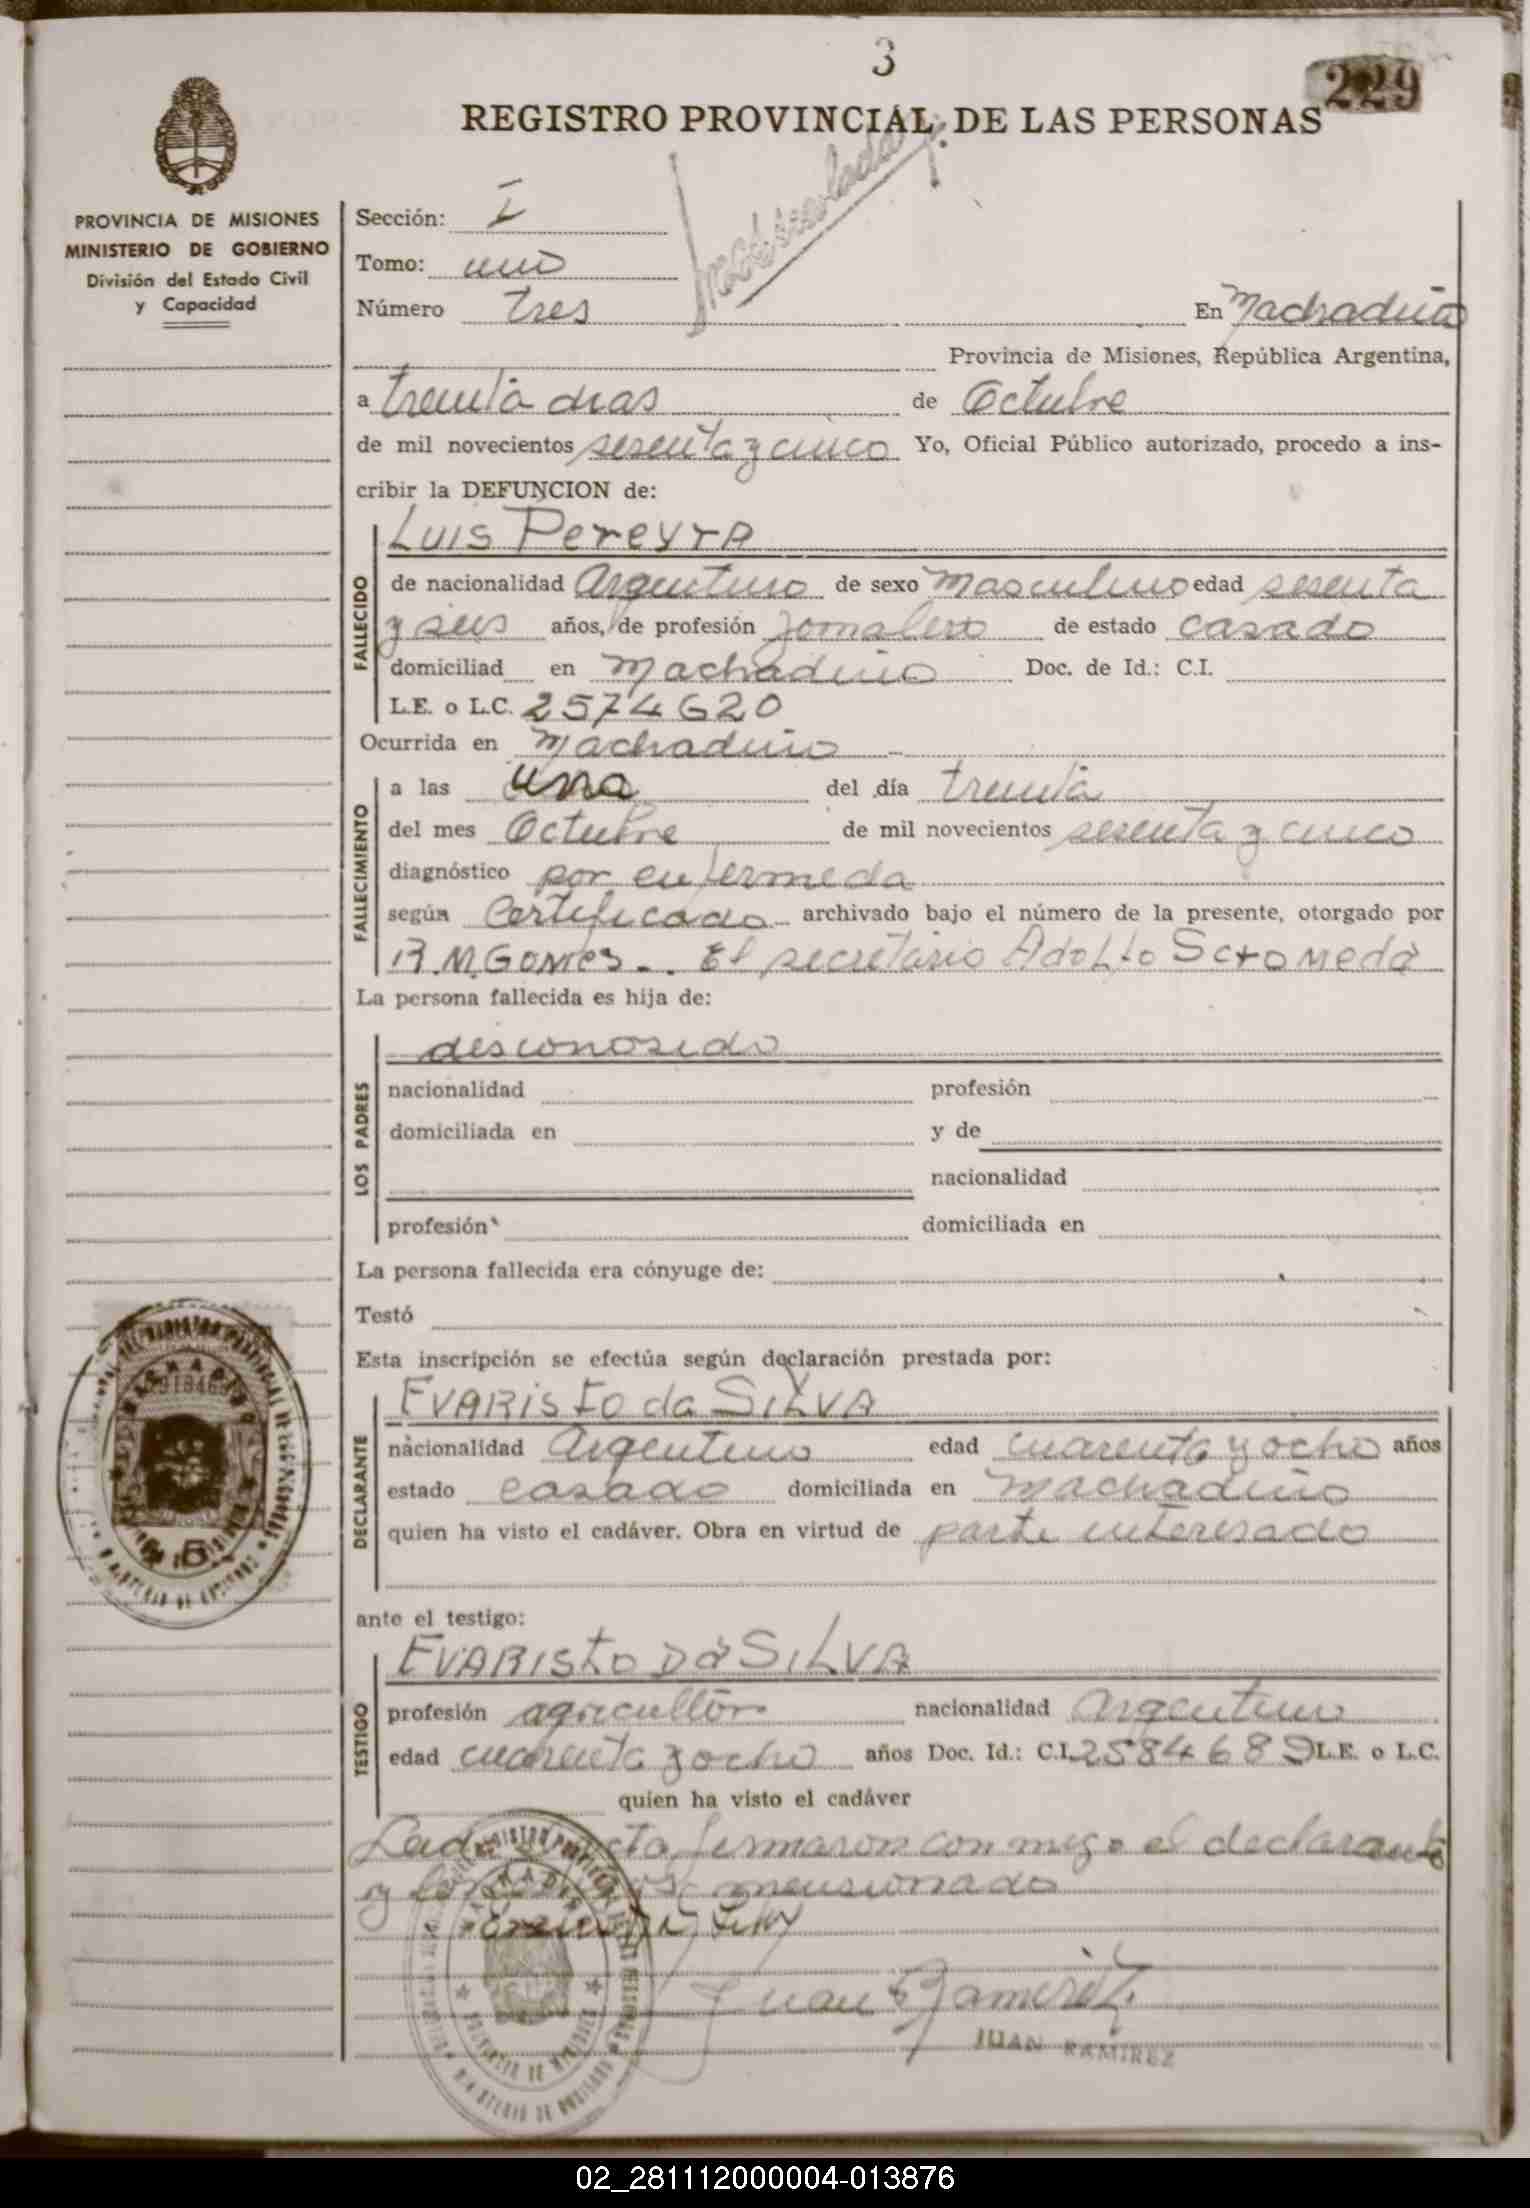 3
229
REGISTRO PROVINCIAL DE LAS PERSONAS
PROVINCIA DE MISIONES
MINISTERIO DE GOBIERNO
División del Estado Civil
y Capacidad
Sección: I
Tomo: uno
Número tres En Machadiño
Provincia de Misiones, República Argentina,
a treinta dias de Octubre
de mil novecientos sesenta y cinco Yo, Oficial Público autorizado, procedo a ins-
cribir la DEFUNCION de:
Luis Pereyra
FALLECIDO
de nacionalidad Argentino de sexo masculino edad sesenta
y seis años, de profesión Jornalero de estado casado
domiciliad en Machadiño Doc. de Id.: C.I.
L.E. o L.C. 2574620
Ocurrida en Machadiño
FALLECIMIENTO
a las una del día treinta
del mes Octubre de mil novecientos sesenta y cinco
diagnóstico por enfermeda
según Certificado archivado bajo el número de la presente, otorgado por
R.M. Gomes El secretario Adolfo
La persona fallecida es hija de:
LOS PADRES
desconosido
nacionalidad profesión
domiciliada en y de
nacionalidad
profesión domiciliada en
La persona fallecida era cónyuge de:
Testó
Esta inscripción se efectúa según declaración prestada por:
DECLARANTE
EVARISTO da SILVA
nacionalidad Argentino edad cuarenta y ocho años
estado casado domiciliada en Machadiño
quien ha visto el cadáver. Obra en virtud de parte interesado
ante el testigo:
TESTIGO
EVARISTO Da SILVA
profesión agricultor nacionalidad Argentino
edad cuarenta y ocho años Doc. Id.: C.I. 2584689 L.E. o L.C.
quien ha visto el cadáver
acta firmaron con migo el declarante
y mensionado
Juan Ramirez
JUAN RAMIREZ
02_281112000004-013876